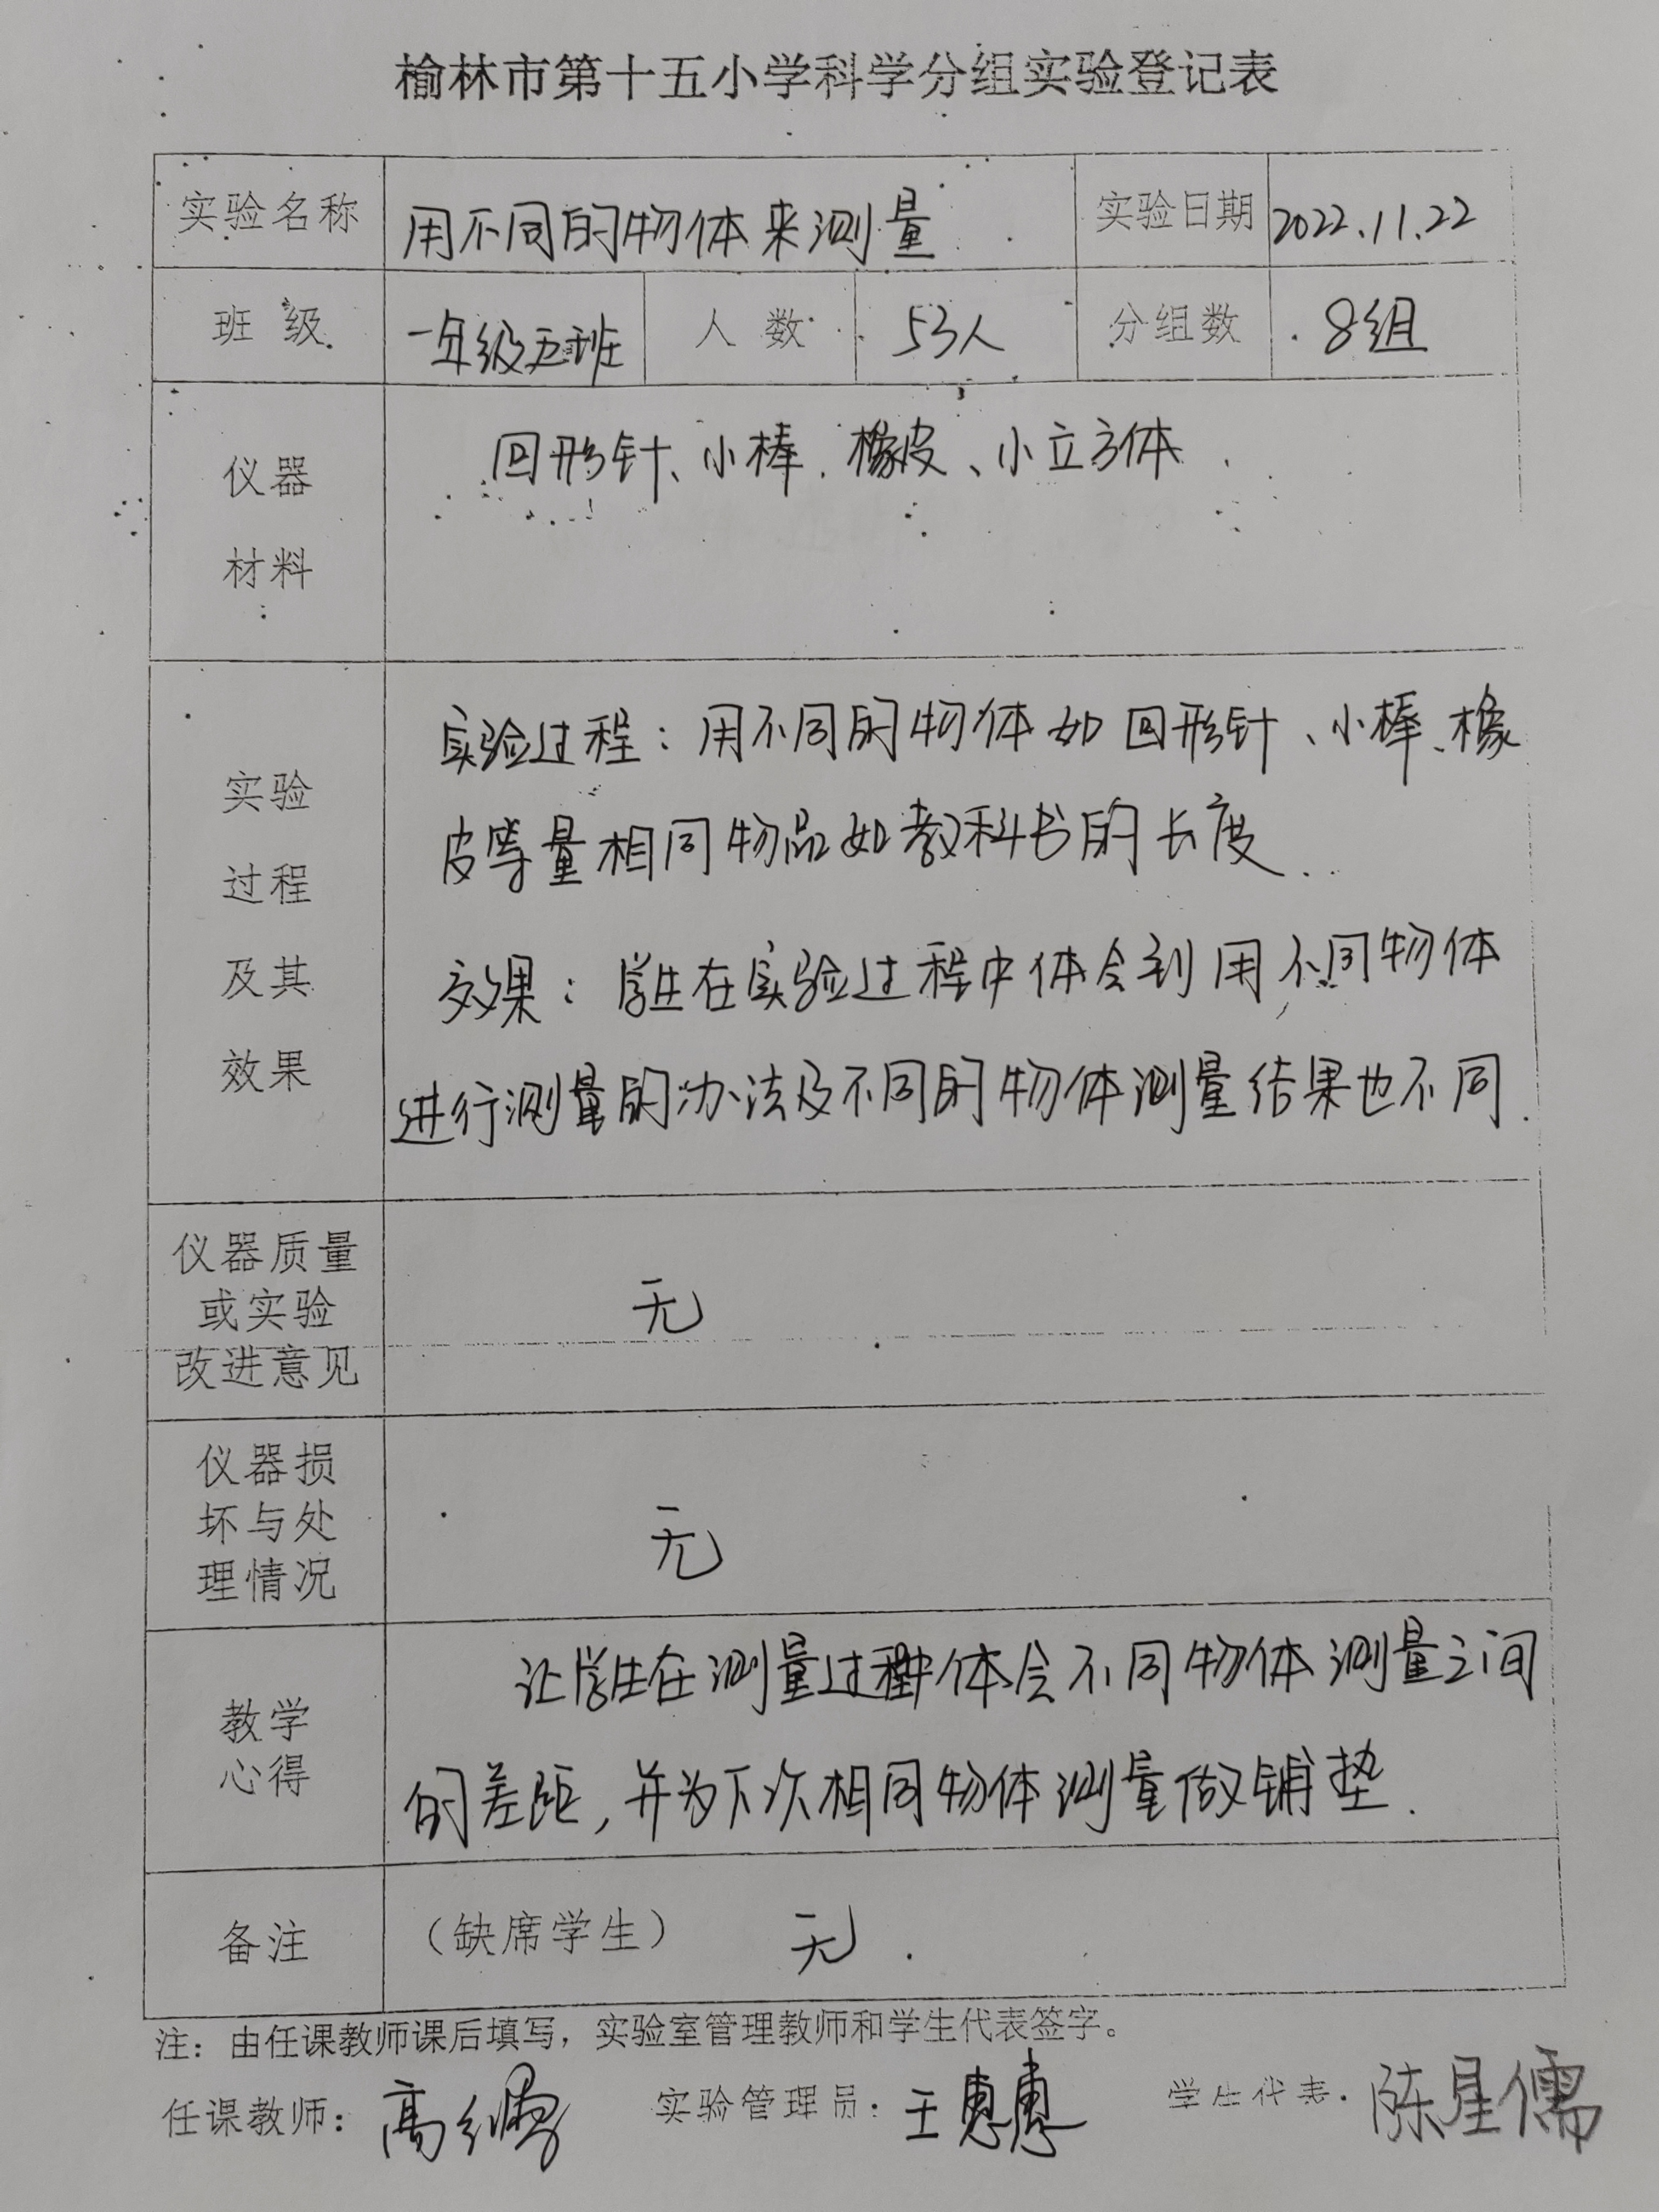 榆林市第十五小学科学分组实验登记表
实验名称 用不同的物体来测量 实验日期 2022.11.22
班 级 一年级五班 人 数 53人 分组数 8组
仪器
材料
回形针、小棒、橡皮、小立方体
实验
过程
及其
效果
实验过程：用不同的物体如回形针、小棒、橡
皮等量相同物品如教科书的长度.
效果：学生在实验过程中体会到用不同物体
进行测量的办法及不同的物体测量结果也不同.
仪器质量
或实验
改进意见
无
仪器损
坏与处
理情况
无
教学
心得
让学生在测量过程中体会不同物体测量之间
的差距,并为下次相同物体测量做铺垫.
备注 （缺席学生） 无.
注：由任课教师课后填写，实验室管理教师和学生代表签字。
任课教师：高 实验管理员：王惠惠 学生代表：陈星儒